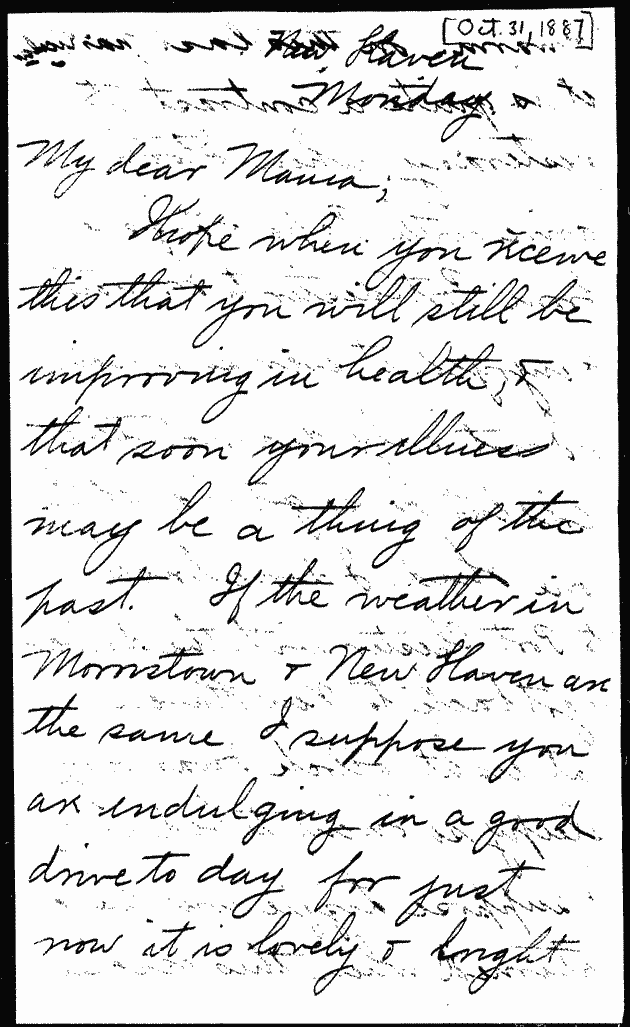 [Oct. 31, 1887]
New Haven
Monday
My dear Mama;
I hope when you receive
this that you will still be
improving in health, &
that soon your illness
may be a thing of the
past. If the weather in
Morristown & New Haven are
the same I suppose you
are indulging in a good
drive to day for just
now it is lovely & bright